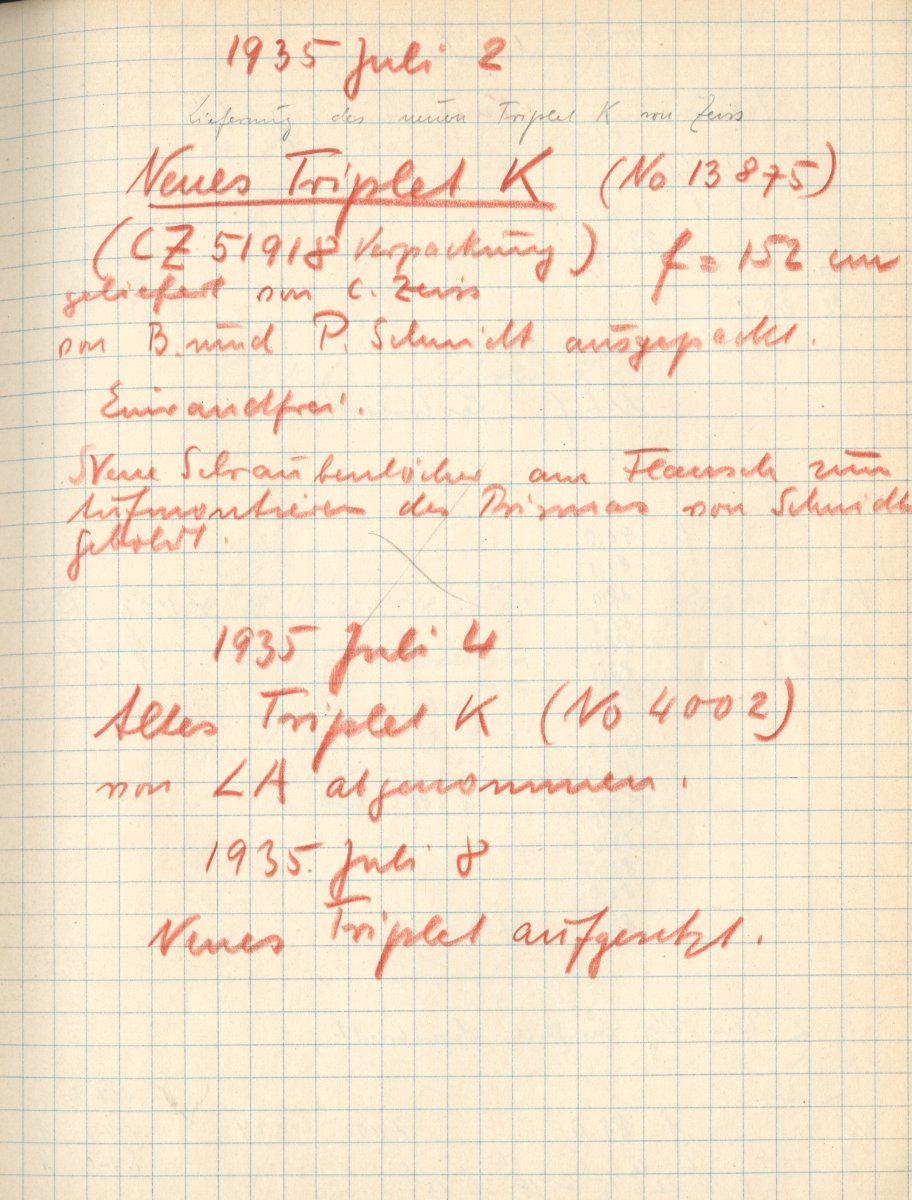 1935 Juli 2
Lieferung des neuen Triplet K von Zeiss
Neues Triplet K (No 13875)
(CZ 51918 Verpackung) f = 152 cm
geliefert von C. Zeiss
von B. und P. Schmidt ausgepackt.
Einwandfrei.
Neue Schraubenlöcher am Flansch zum
Aufmontieren des Prismas von Schmidt
gebohrt.
1935 Juli 4
Altes Triplet K (No 4002)
von LA abgenommen.
1935. Juli 8
Neues Triplet aufgesetzt.